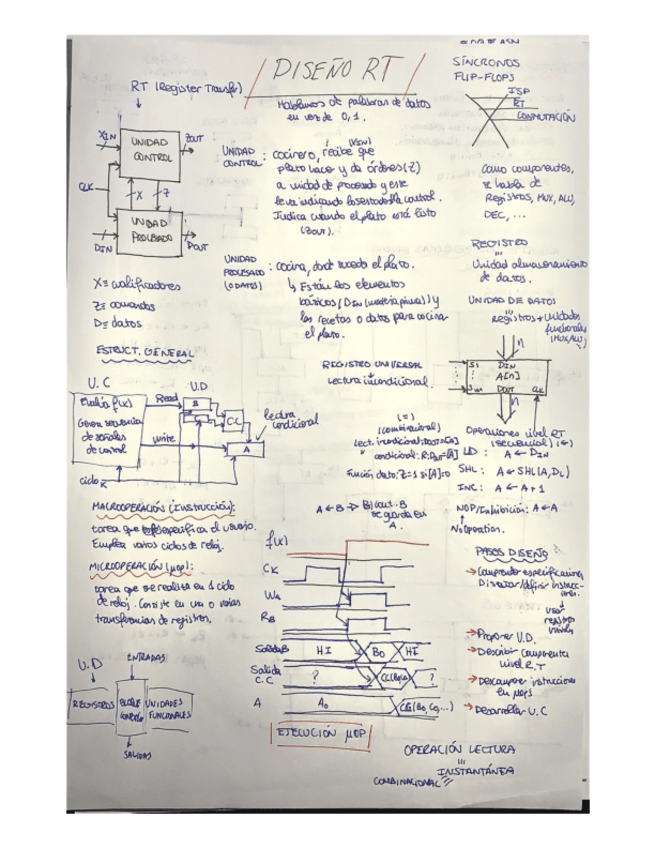 DISEÑO RT
RT (Register Transfer)
Hablamos de palabras de datos
en vez de 0, 1.
SÍNCRONOS
FLIP-FLOPS
ISP
RT
CONMUTACIÓN
XIN
UNIDAD
CONTROL
ZOUT
CLK
X
Z
UNIDAD
PROCESADO
DIN
DOUT
UNIDAD
CONTROL:
cocinero, recibe que
(XIN)
plato hacer y da órdenes (Z)
a unidad de procesado y este
le va indicando los estados de control.
Indica cuando el plato está listo
(ZOUT).
Como componentes,
se habla de
Registros, MUX, ALU,
DEC, ...
UNIDAD
PROCESADO
(O DATOS)
: cocina, donde sucede el plato.
↳ Están los elementos
básicos (DIN (materia prima)) y
las recetas o datos para cocinar
el plato.
REGISTRO
Unidad almacenamiento
de datos.
UNIDAD DE DATOS
Registros + Unidades
funcionales
(MUX, ALU)
X ≡ cualificadores
Z ≡ comandos
D ≡ datos
ESTRUCT. GENERAL
REGISTRO UNIVERSAL
Lectura incondicional.
n
DIN
A[n]
DOUT
CLK
n
U.C
Evalúa f(x)
Genera secuencia
de señales
de control
Read
Write
U.D
B
C.C
A
lectura
condicional
ciclo k
(=)
(combinacional)
Lect. incondicional: DOUT=[A]
condicional: R: DOUT=[A]
Función dato: Z=1 si [A]=0
Operaciones nivel RT
(secuencial) (←)
LD: A ← DIN
SHL: A ← SHL(A, DL)
INC: A ← A+1
NOP/Inhibición: A ← A
No operation.
MACROOPERACIÓN (INSTRUCCIÓN):
tarea que especifica el usuario.
Emplea varios ciclos de reloj.
MICROOPERACIÓN (μOP):
tarea que se realiza en 1 ciclo
de reloj. Consiste en una o varias
transferencias de registros.
A ← B
se guarda en
A.
f(x)
CK
WA
RB
Salida B
HI
B0
HI
Salida
C.C
?
?
A
A0
EJECUCIÓN μOP
PASOS DISEÑO
→ Comprender especificaciones,
→ Proponer U.D.
→ Describir componentes
nivel R.T
→ Descomponer instrucciones
en μops
→ Desarrollar U.C
U.D
ENTRADAS
REGISTROS
UNIDADES
FUNCIONALES
SALIDAS
OPERACIÓN LECTURA
INSTANTÁNEA
COMBINACIONAL